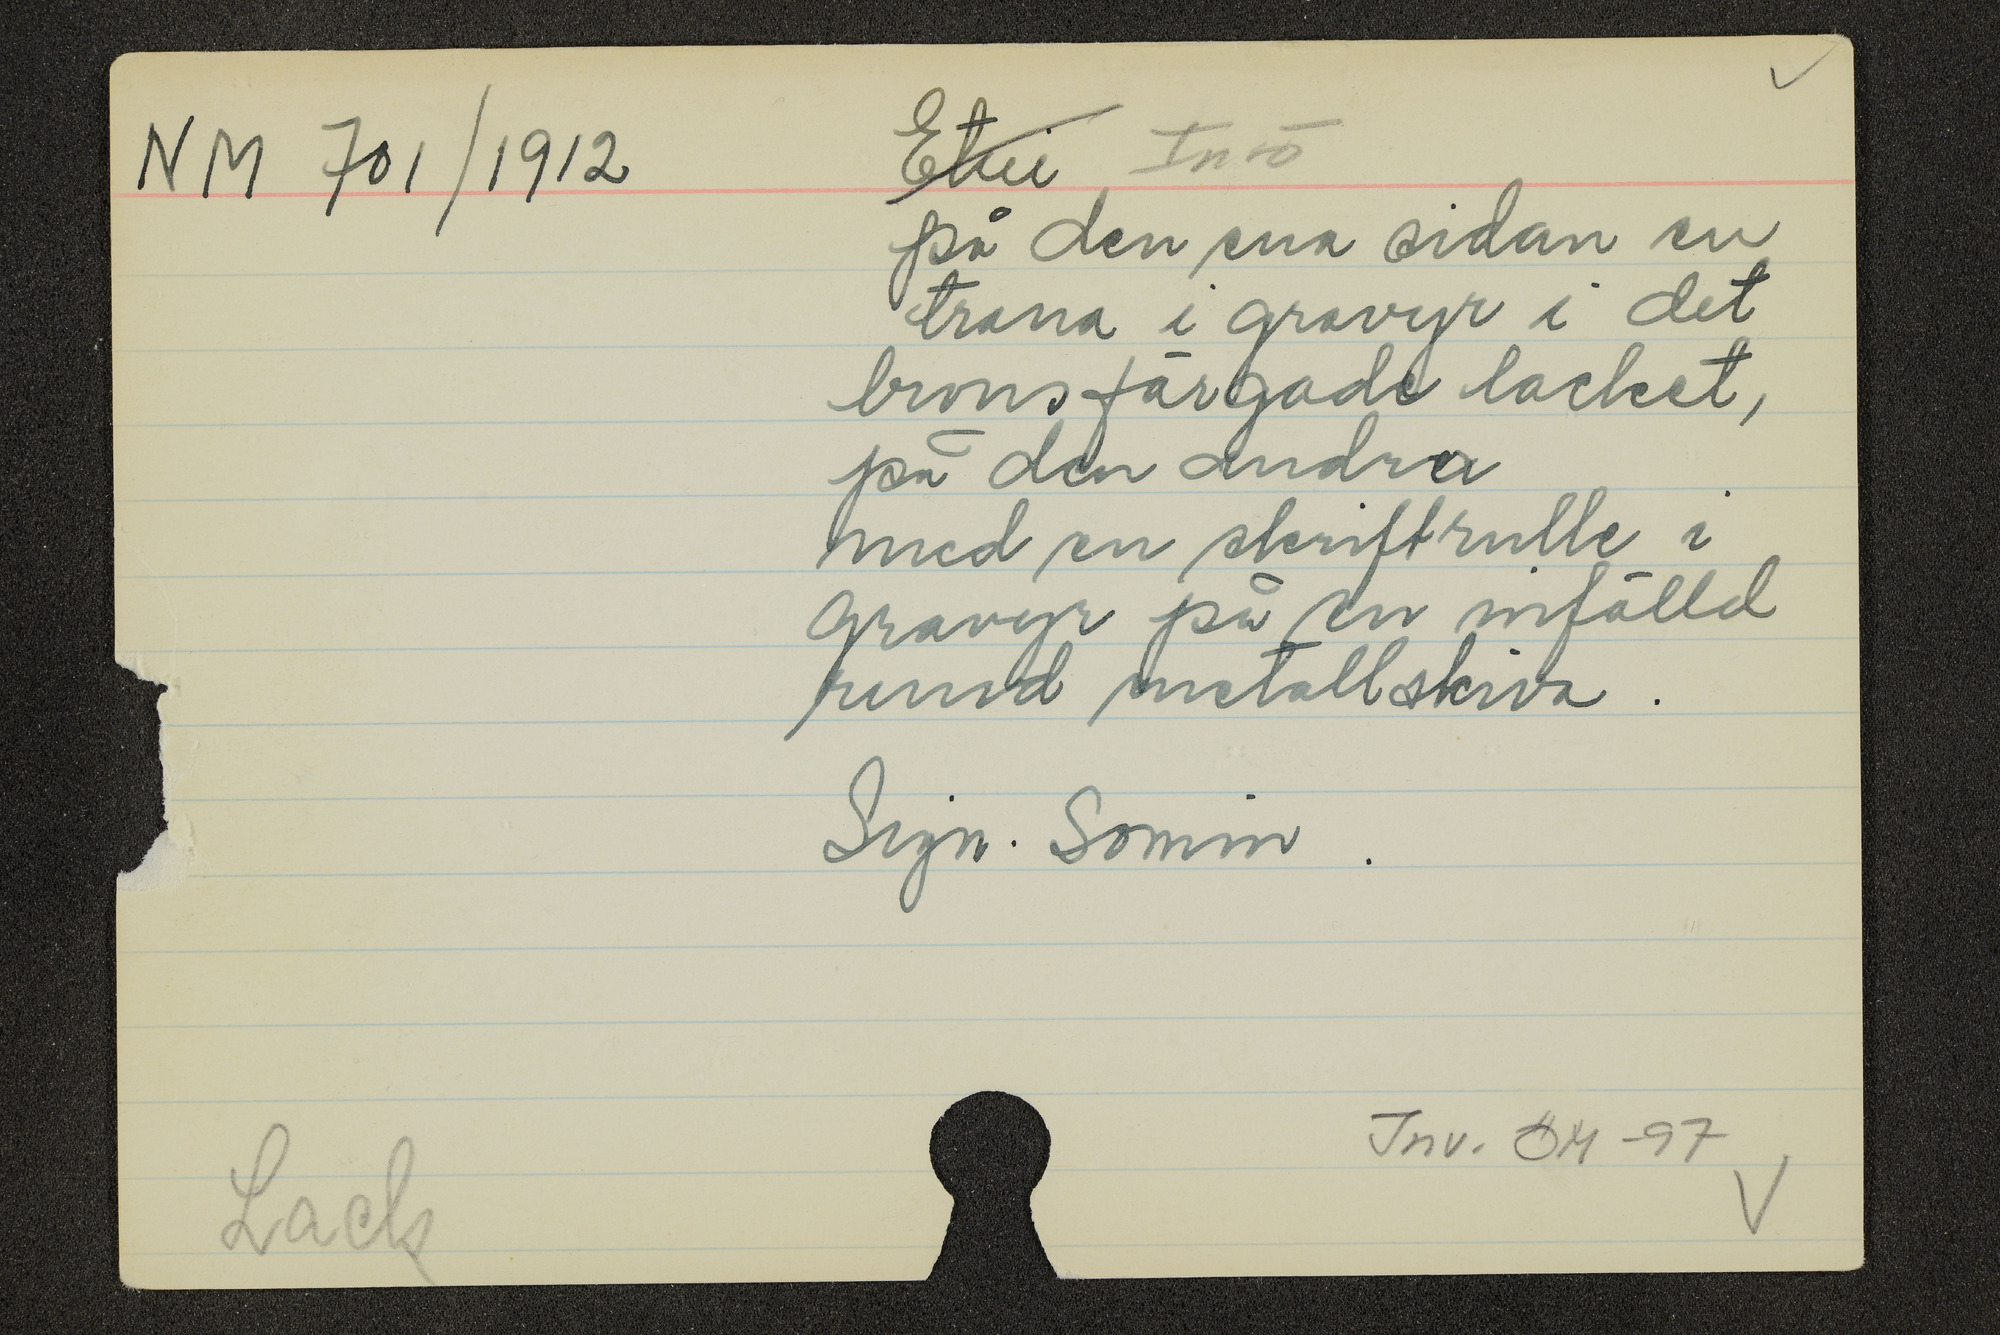 NM 701/1912
Etui Inrō
på den ena sidan en
trana i gravyr i det
bronsfärgade lacket,
på den andra
med en skriftrulle i
gravyr på en infälld
rund metallskiva.
Sign. Somin.
Inv. ÖM -97
V
Lack